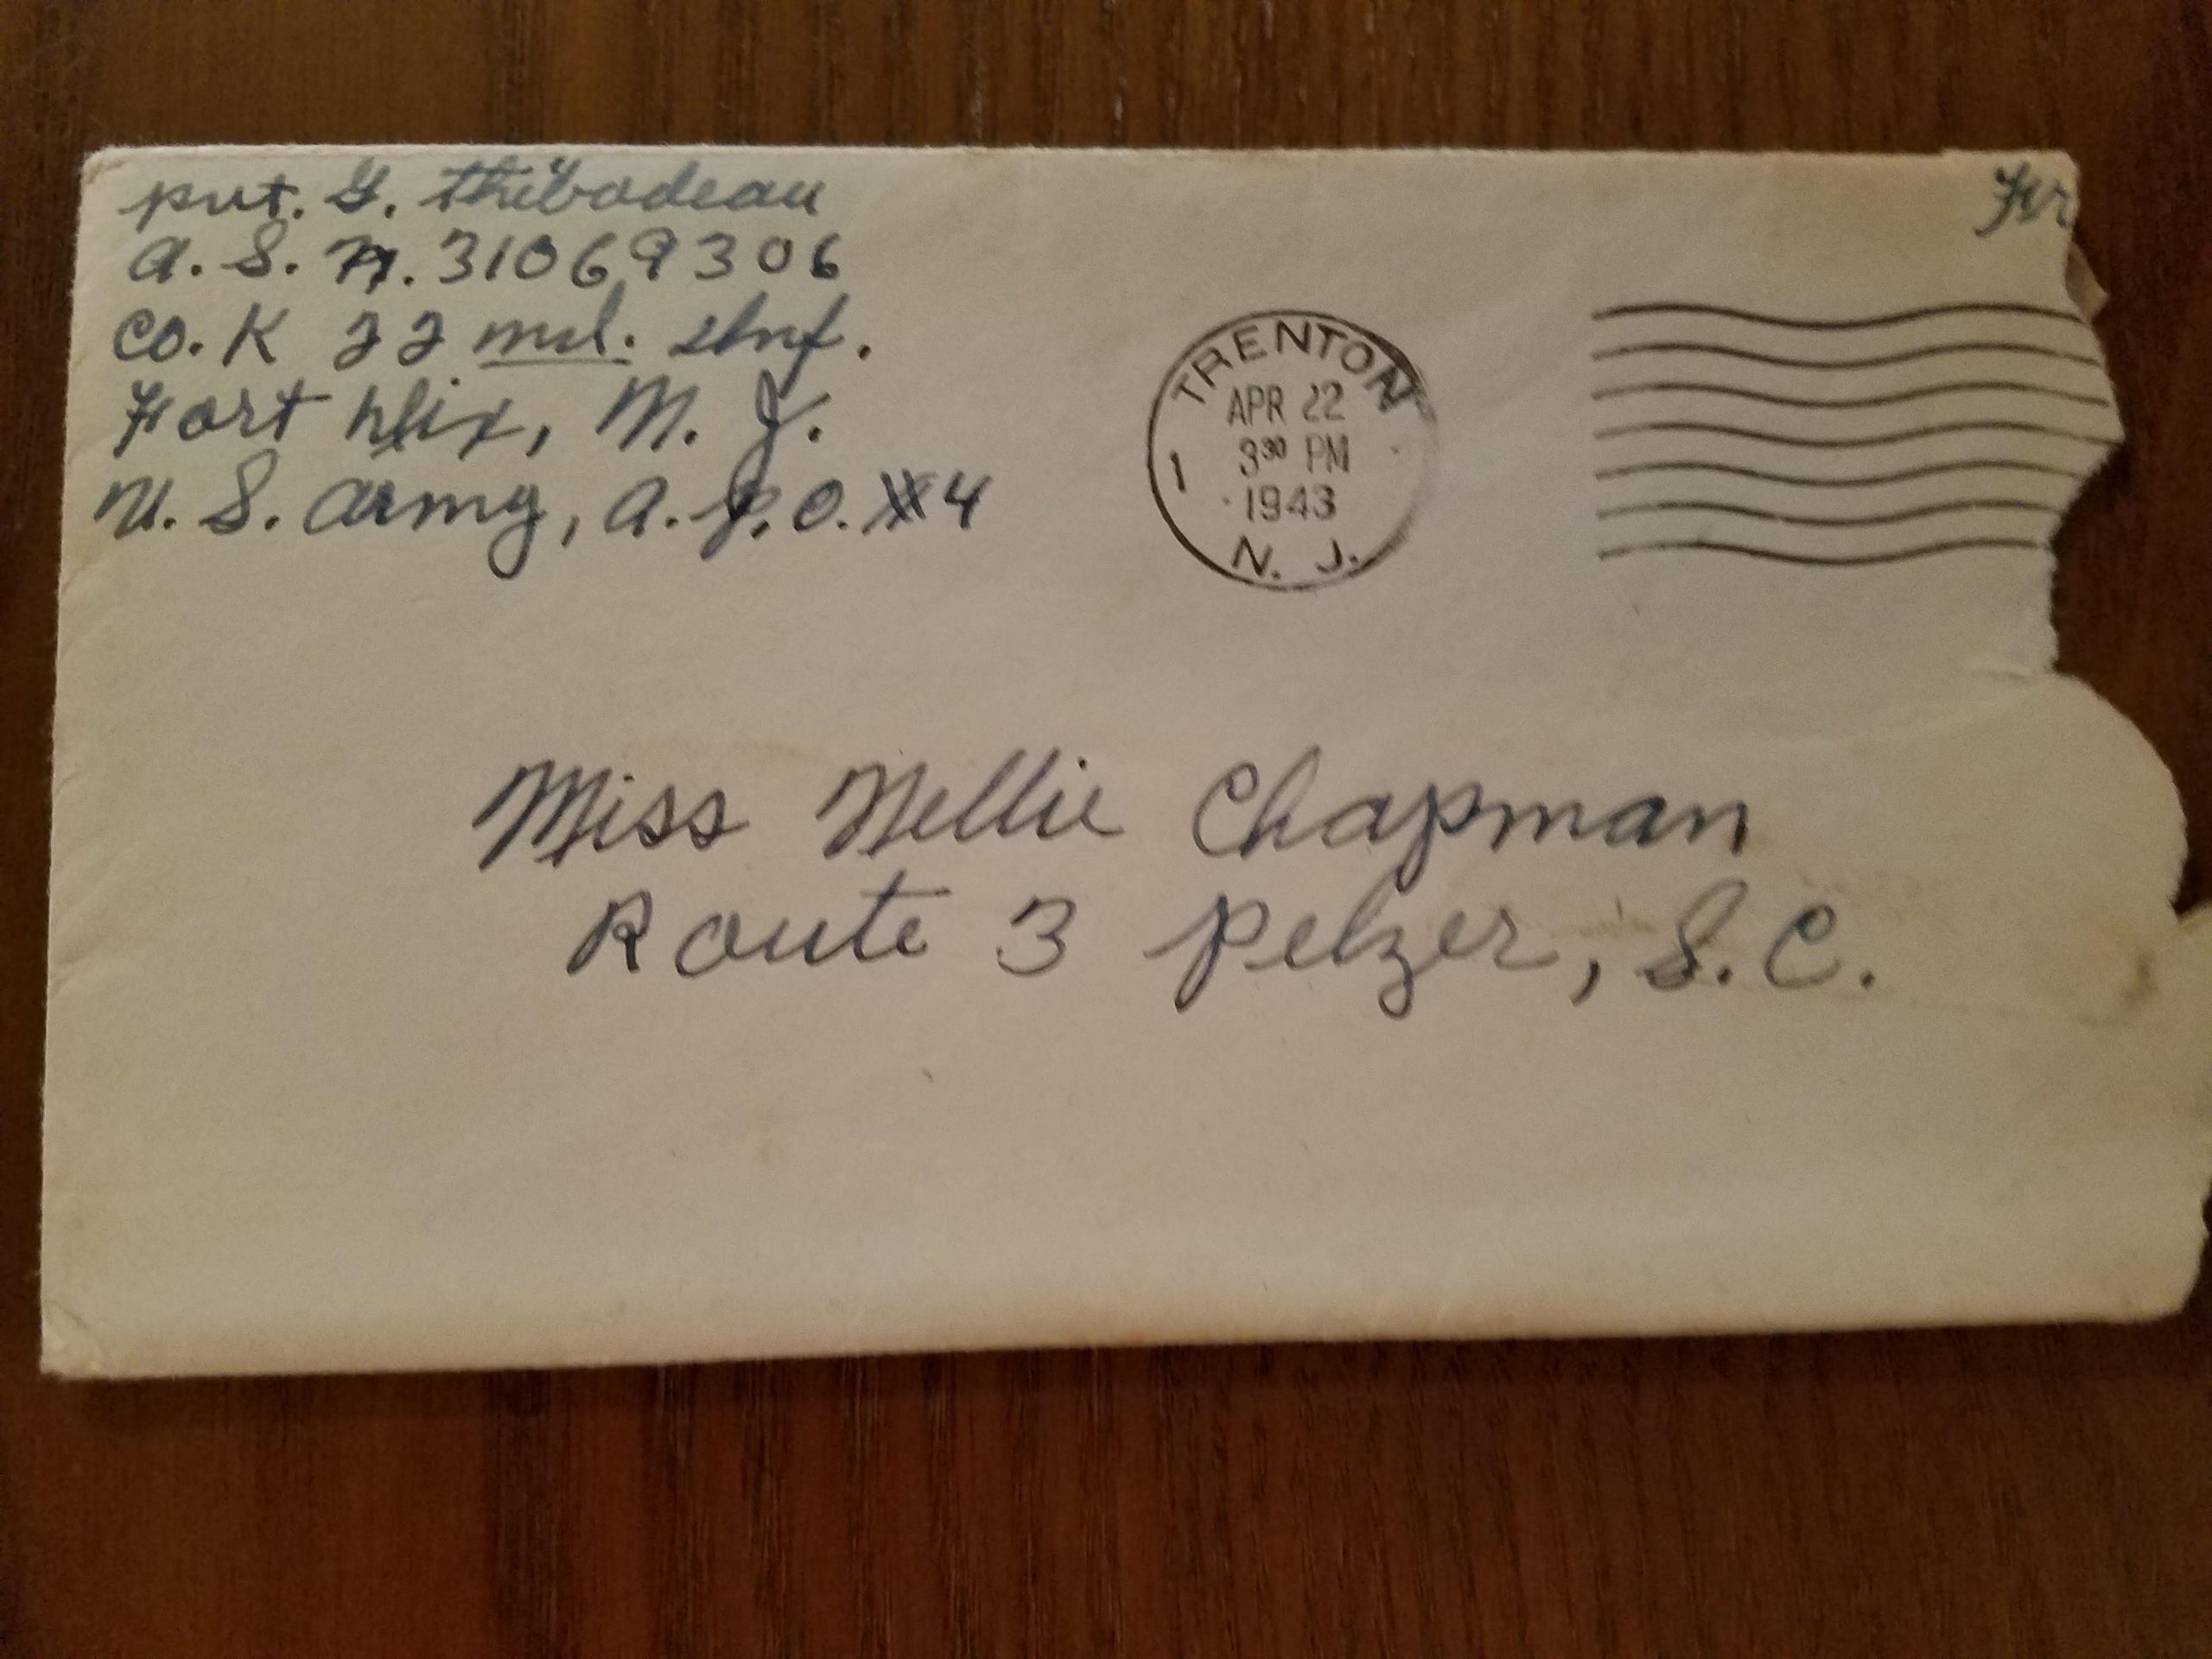 pvt. G. Thibodeau
A. S. N. 31069306
Co. K 22 Inf.
Fort Dix, N. J.
U. S. Army, A.P.O. #4
Fr
TRENTON
APR 22
3 30 PM
1943
1
N. J.
Miss Nellie Chapman
Route 3 Pelzer, S.C.